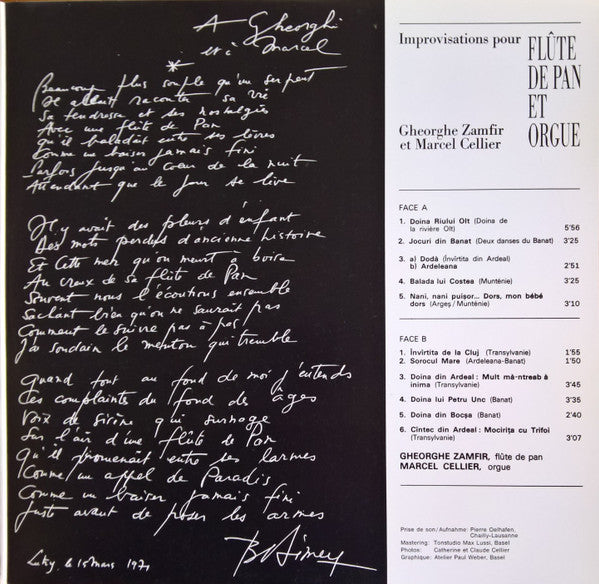 A Gheorghi
et à Marcel
*
Beaucoup plus souple qu'un serpent
Il allait raconter sa vie
Sa tendresse et ses nostalgies
Avec une flûte de Pan
qu'il baladait entre ses lèvres
Comme un baiser jamais fini
Parfois jusqu'au cœur de la nuit
Attendant que le jour se lève
Il y avait des pleurs d'enfant
Des mots perdus d'ancienne histoire
Et cette mer qu'on meurt à boire
Au creux de sa flûte de Pan
Souvent nous l'écoutions ensemble
Sachant bien qu'on ne saurait pas
Comment le suivre pas à pas
J'ai soudain le menton qui tremble
Quand tout au fond de moi j'entends
Ces complaintes du fond des âges
Voix de sirène qui surnage
Sur l'air d'une flûte de Pan
Qu'il promenait entre ses larmes
Comme un appel de Paradis
Comme un baiser jamais fini
Juste avant de poser les armes
le 15 mars 1971
Improvisations pour
FLÛTE
DE PAN
ET
ORGUE
Gheorghe Zamfir
et Marcel Cellier
FACE A
1. Doina Riului Olt (Doina de
la rivière Olt) 5'56
2. Jocuri din Banat (Deux danses du Banat) 3'25
3. a) Dodă (Învirtita din Ardeal)
b) Ardeleana 2'51
4. Balada lui Costea (Munténie) 3'25
5. Nani, nani puișor... Dors, mon bébé
dors (Argeș/Munténie) 3'10
FACE B
1. Învirtita de la Cluj (Transylvanie) 1'55
2. Sorocul Mare (Ardeleana-Banat) 1'50
3. Doina din Ardeal : Mult mă-ntreabă
inima (Transylvanie) 3'45
4. Doina lui Petru Unc (Banat) 3'35
5. Doina din Bocșa (Banat) 2'40
6. Cintec din Ardeal : Mocirița cu Trifoi
(Transylvanie) 3'07
GHEORGHE ZAMFIR, flûte de pan
MARCEL CELLIER, orgue
Prise de son/Aufnahme: Pierre Oelhafen,
Chailly-Lausanne
Mastering: Tonstudio Max Lussi, Basel
Photos: Catherine et Claude Cellier
Graphique: Atelier Paul Weber, Basel